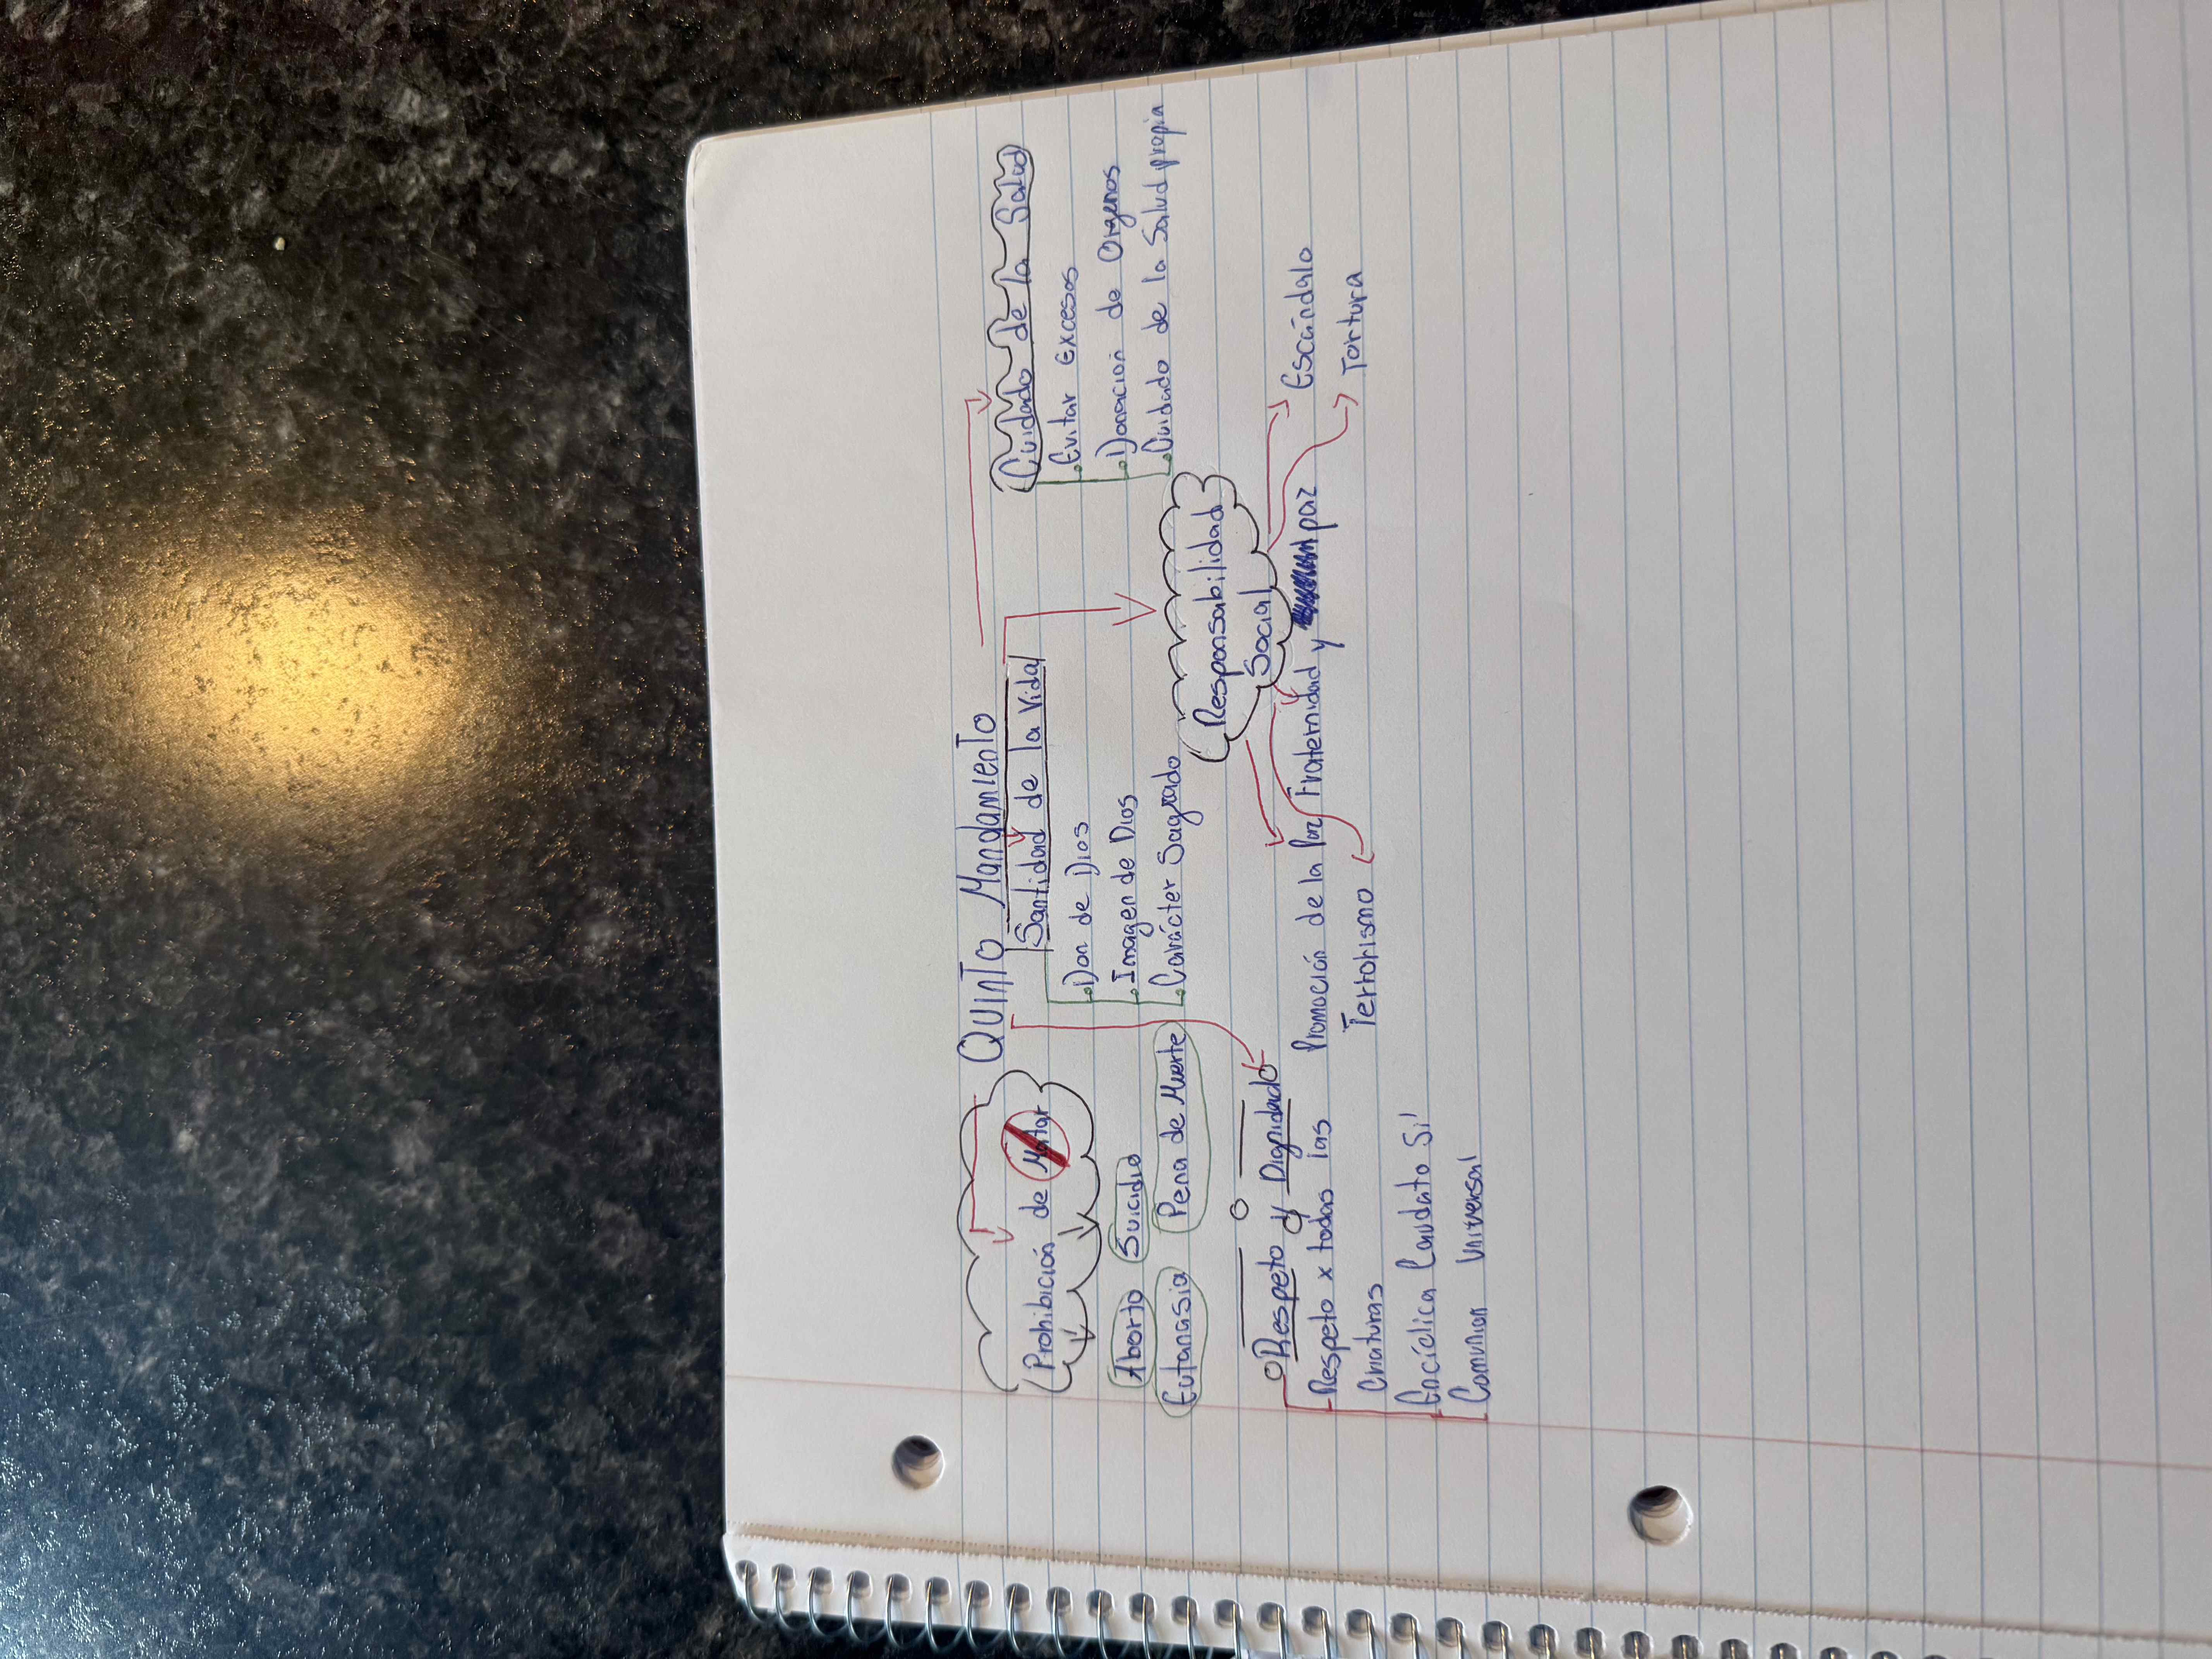 Quinto Mandamiento
Prohibición de Matar
Aborto Suicidio
Eutanasia Pena de Muerte
Santidad de la Vida
Don de Dios
Imagen de Dios
Carácter Sagrado
Cuidado de la Salud
Evitar Excesos
Donación de Organos
Cuidado de la Salud propia
Responsabilidad
Social
Escándalo
Promoción de la Paz Fraternidad y paz
Tortura
Terrorismo
Respeto y Dignidad
Respeto x todas las
Criaturas
Encíclica Laudato Si'
Comunion Universal